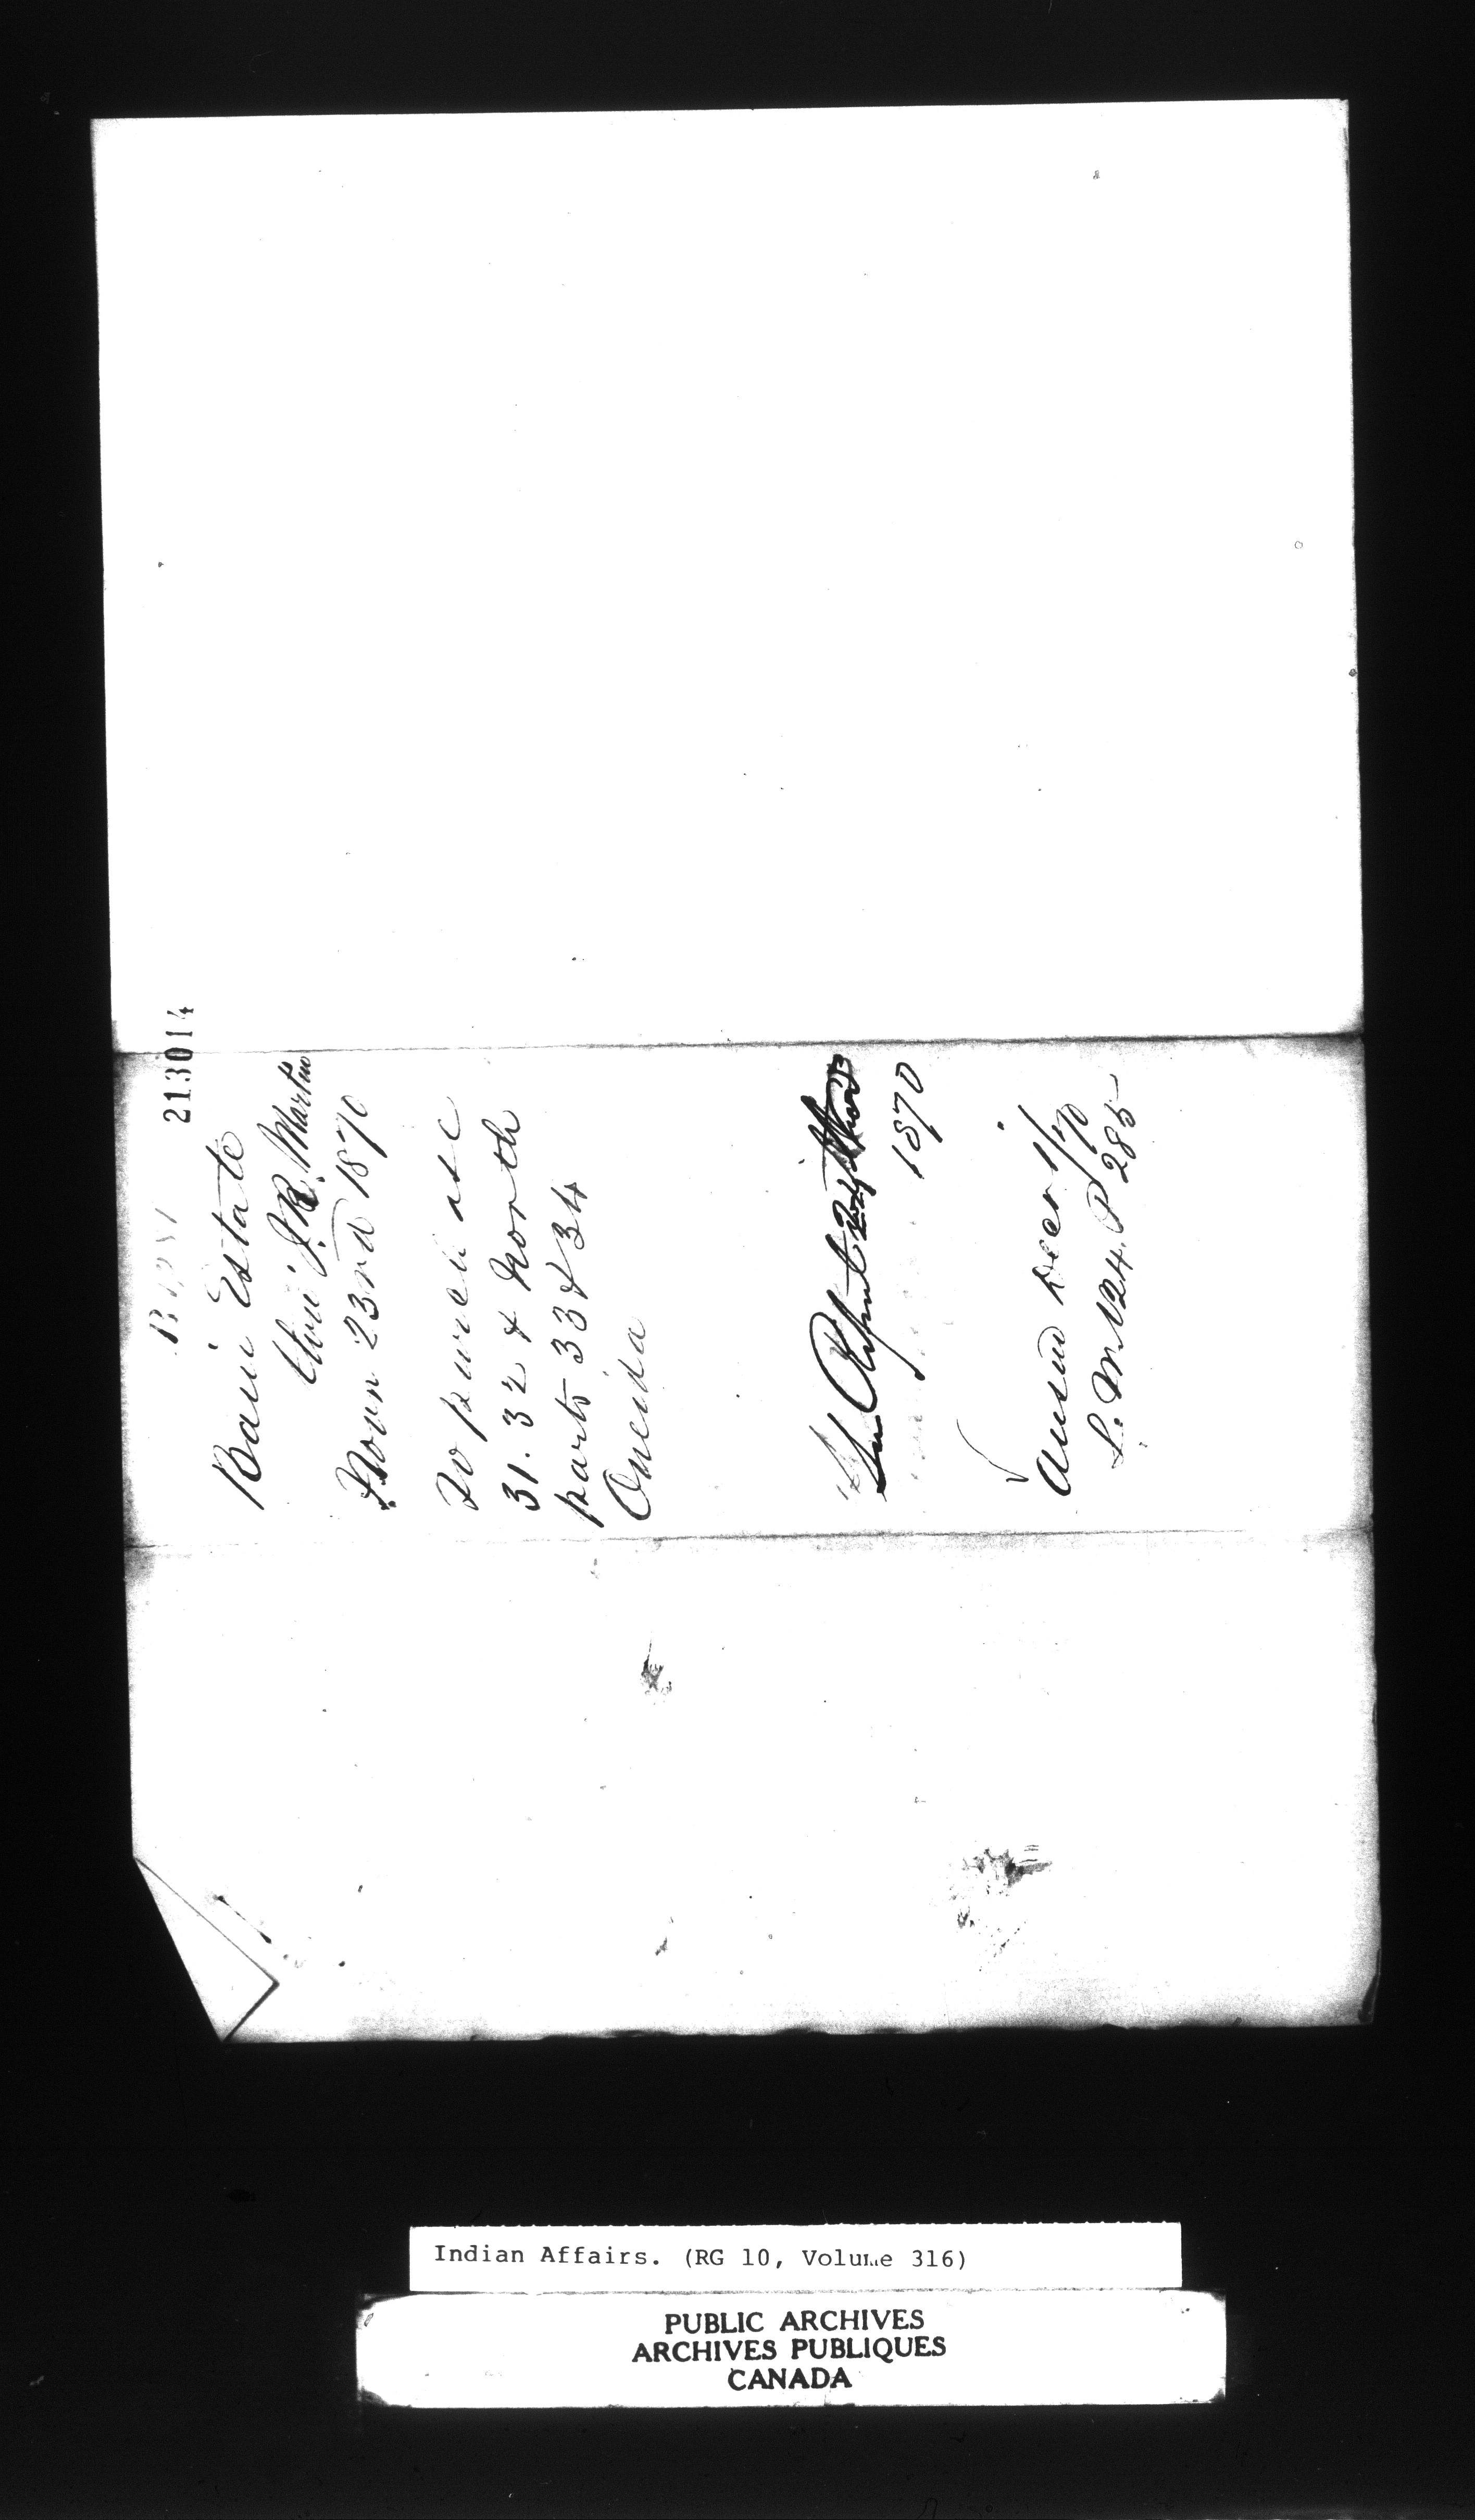 213014
Bain Estate
J.R. Martin
Novr 23rd 1870
To purchase
31. 32 & North
parts 33 & 34
Oneida
1870
Ansd Decr 1/70
L. M 24. P 285
Indian Affairs. (RG 10, Volume 316)
PUBLIC ARCHIVES
ARCHIVES PUBLIQUES
CANADA